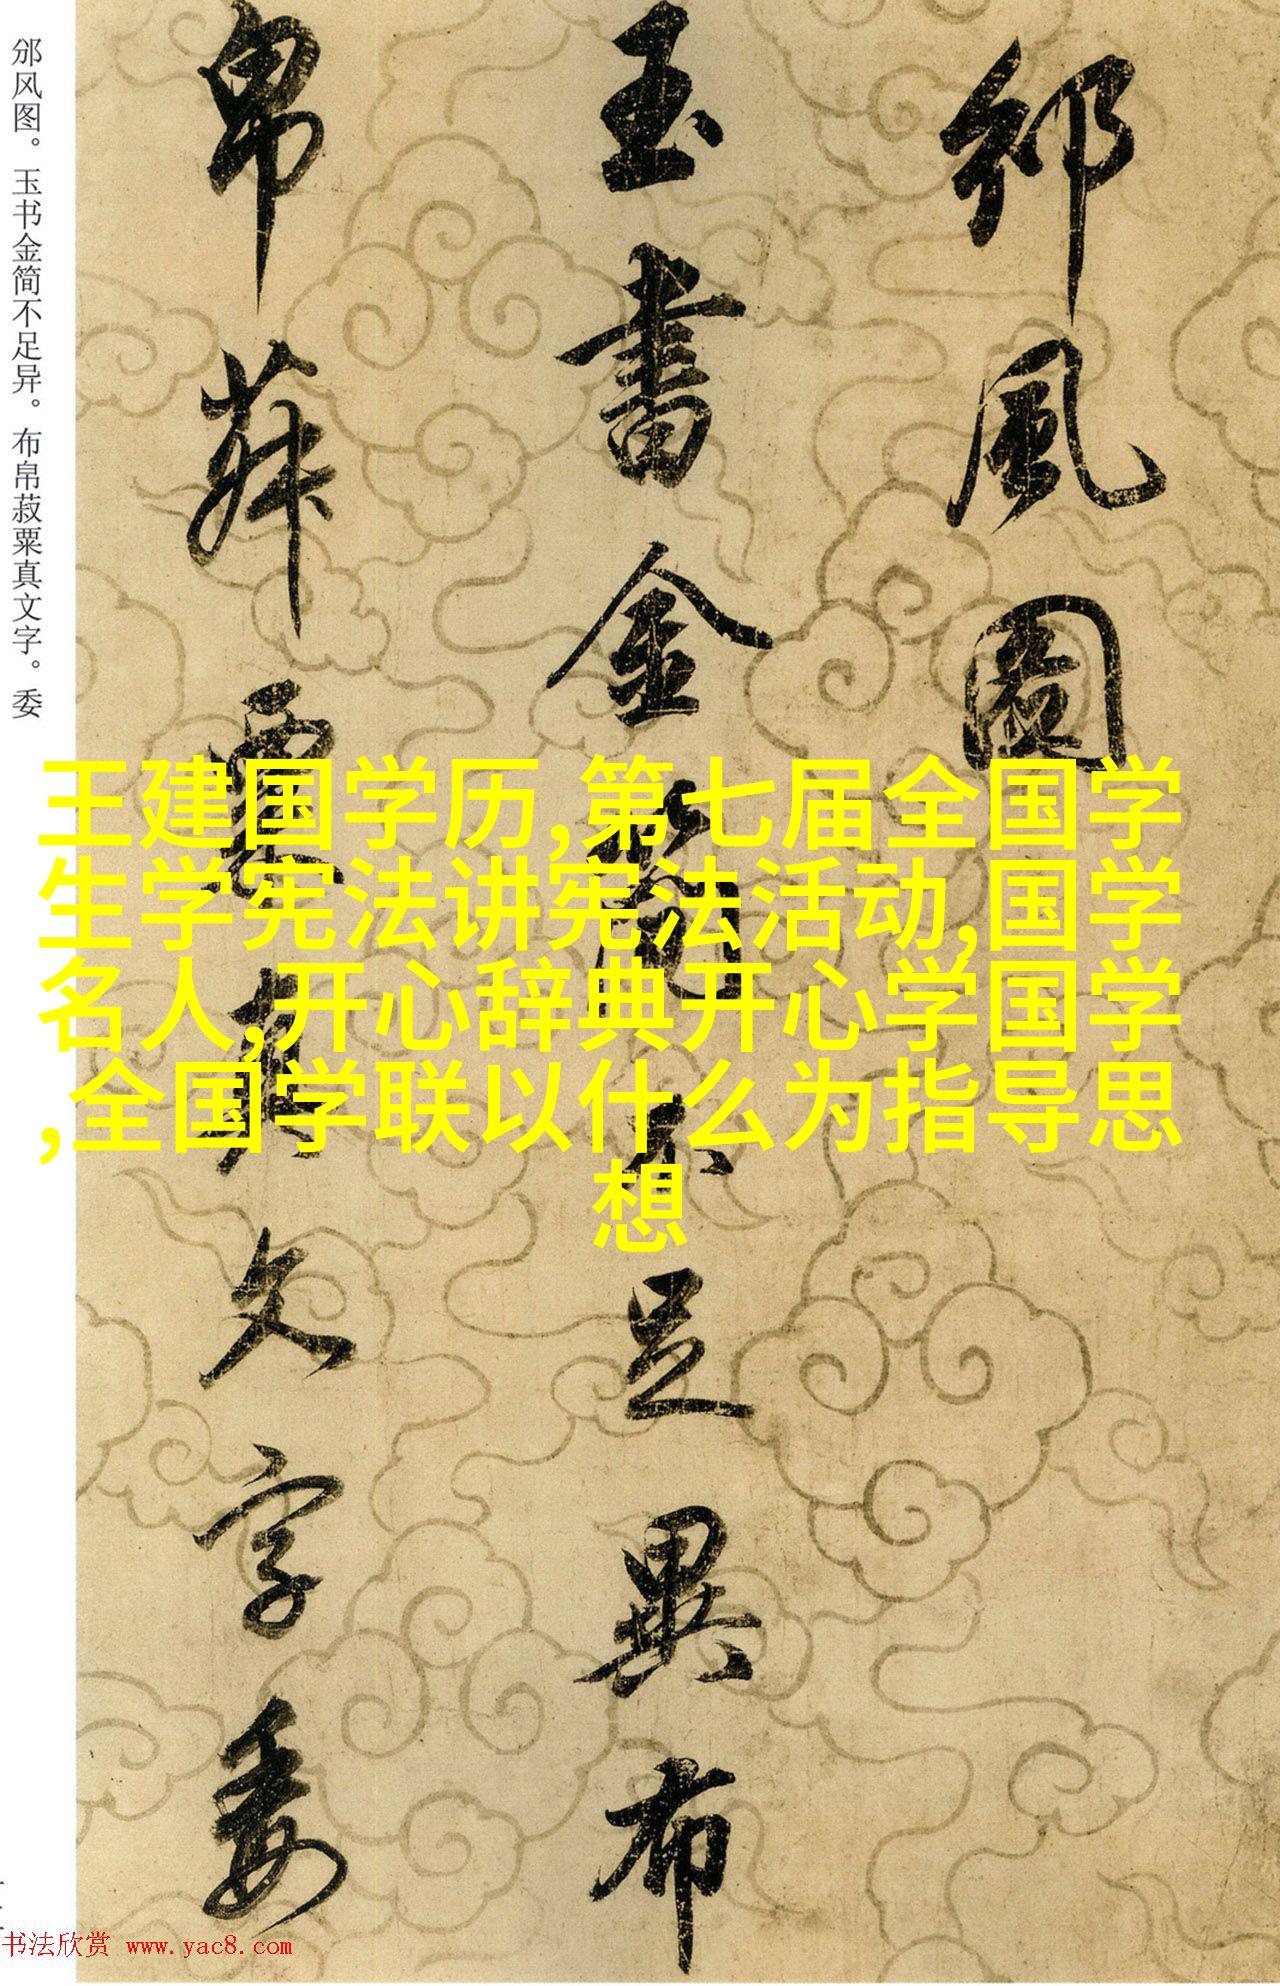 邠风图。玉书金简不足异。布帛菽粟真文字。委
邠風圖
玉書金簡不足異布
帛菽粟真文字委
王建国学历,第七届全国学
生学宪法讲宪法活动,国学
名人,开心辞典开心学国学
,全国学联以什么为指导思
想
书法欣赏 www.yac8.com